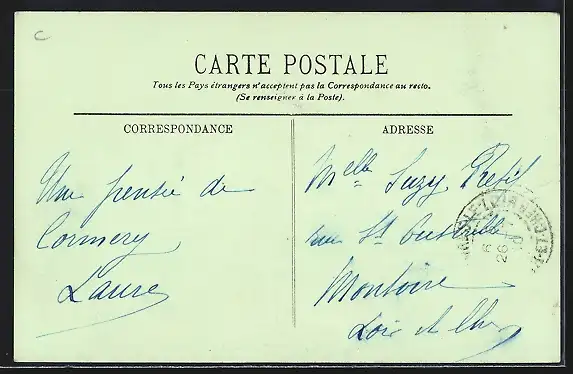 C
CARTE POSTALE
Tous les Pays étrangers n'acceptent pas la Correspondance au recto.
(Se renseigner à la Poste).
CORRESPONDANCE
ADRESSE
Une pensée de
Cormery
Laure
Melle Suzy Petit
rue St
Montoire
Loir et Cher
6
26
10